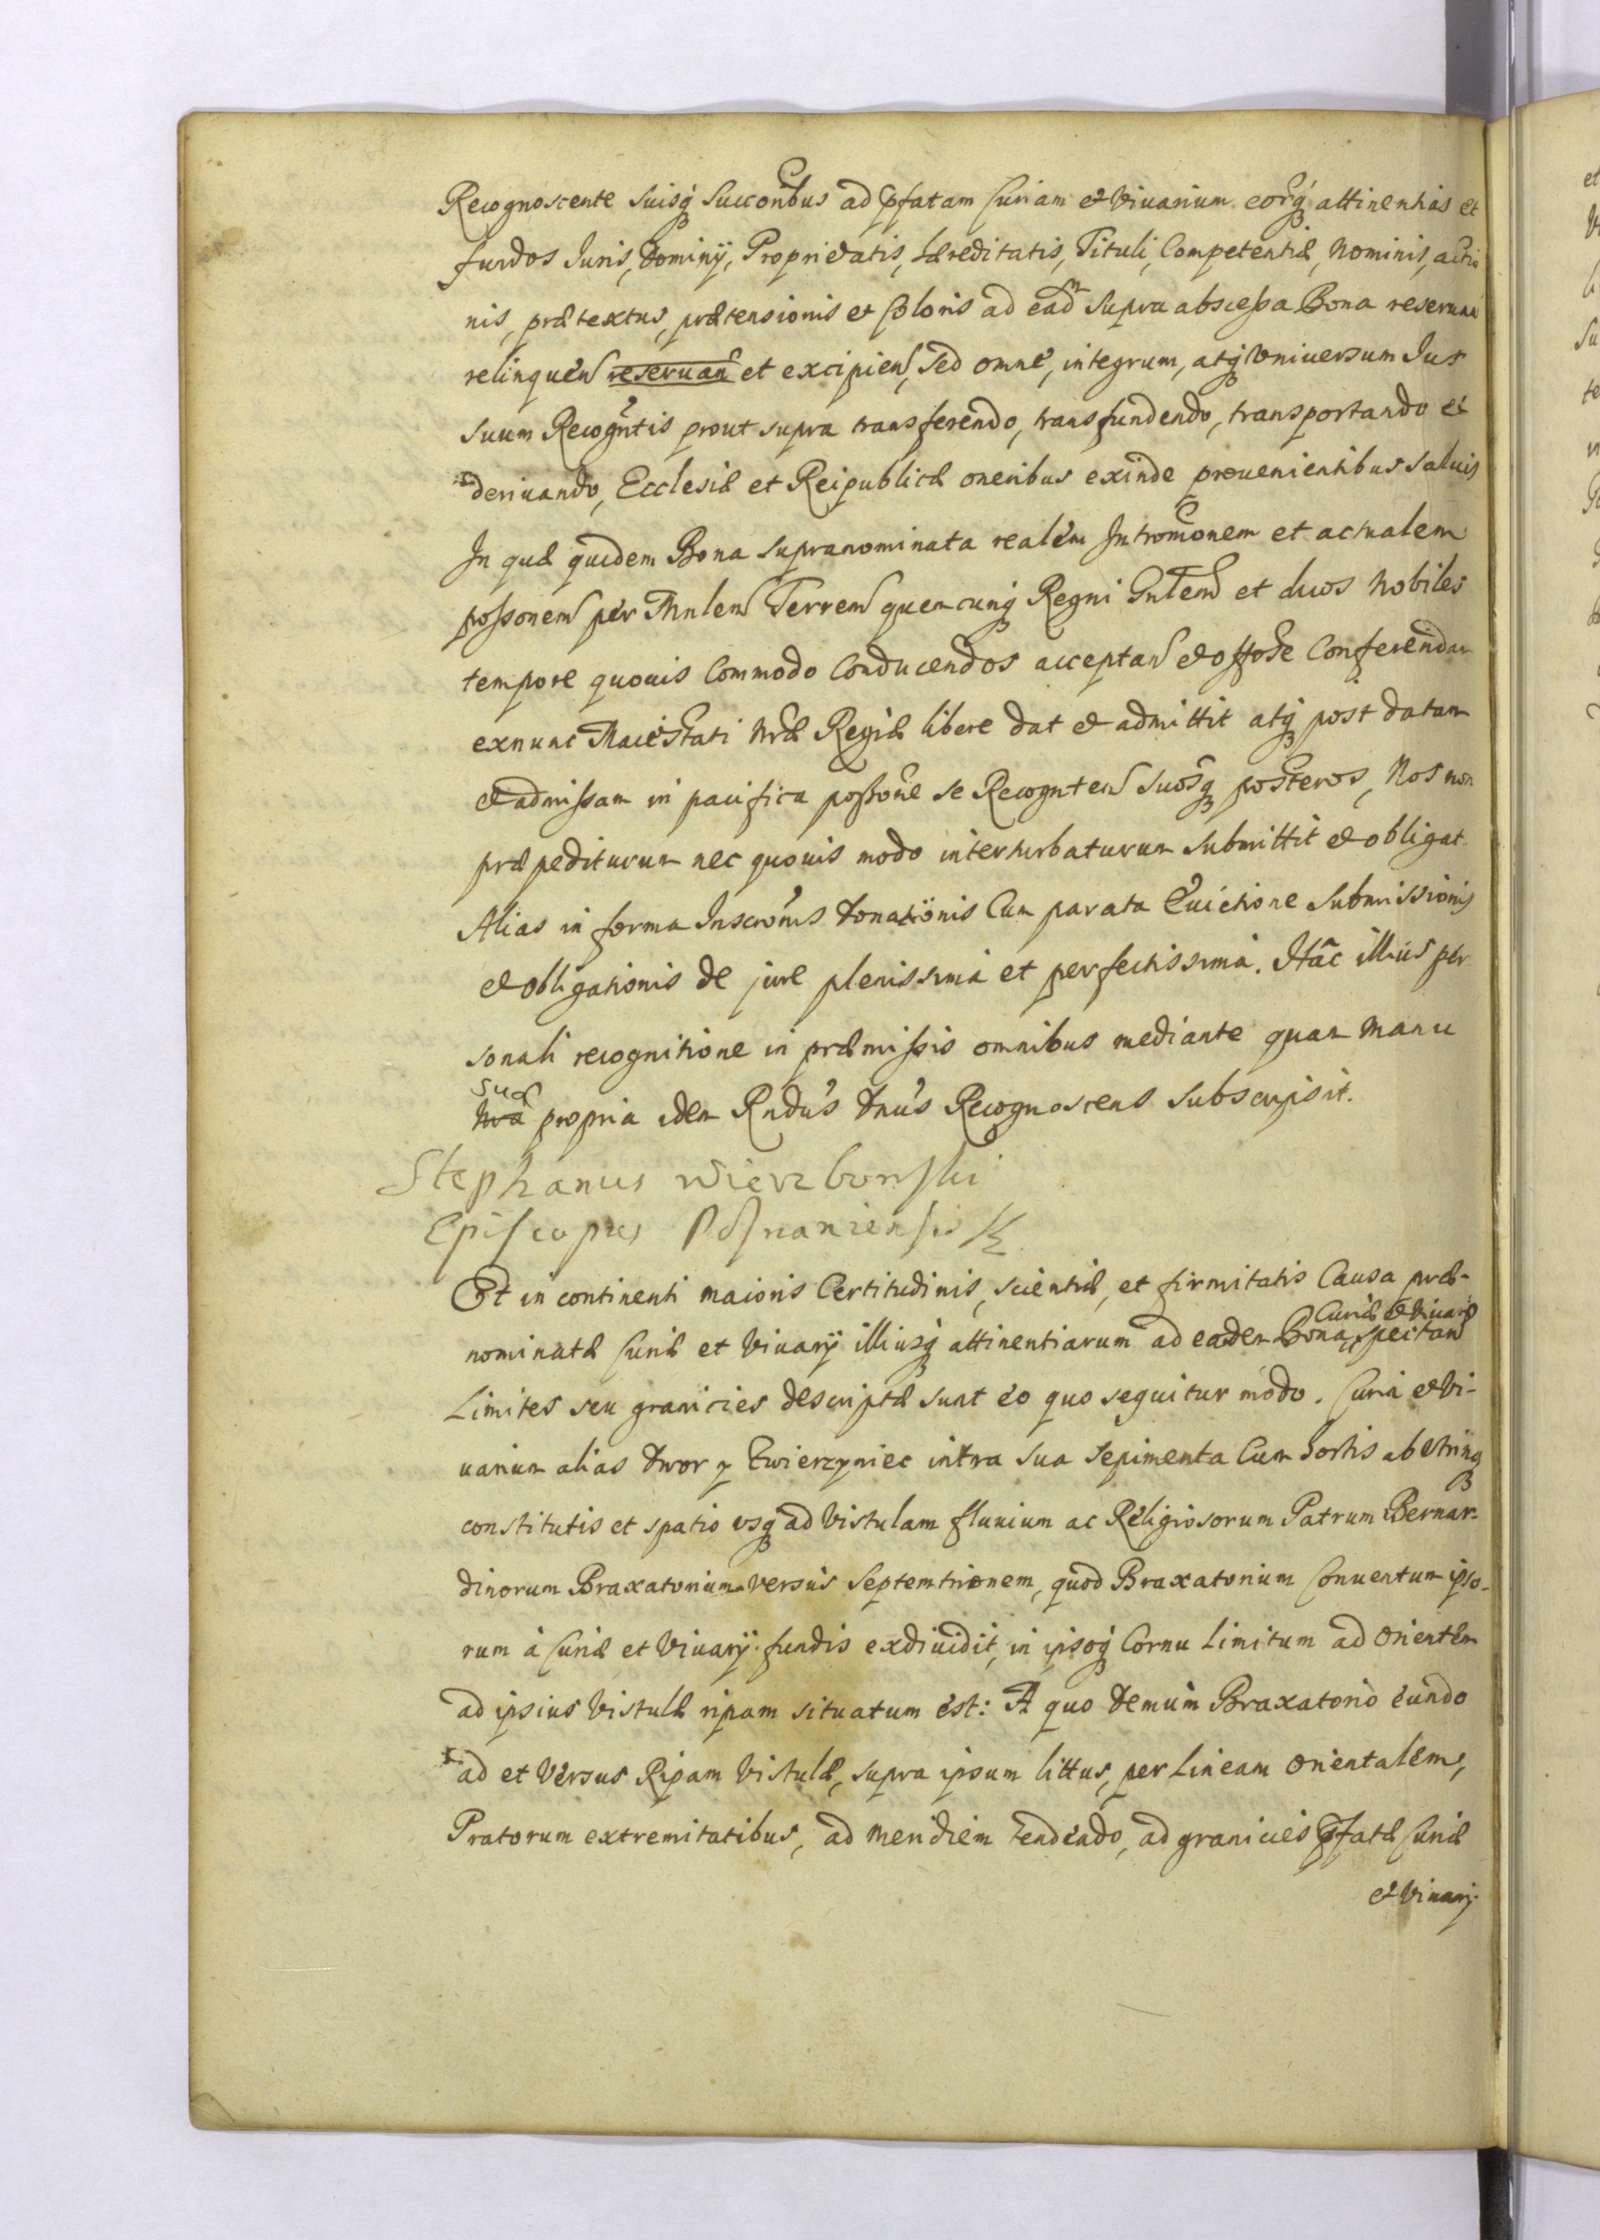 Recognoscente suisq succonbus ad pfatam Curiam et Vivarium eorq attinentias et
fundos Iuris, Dominÿ, Proprietatis, Hæreditatis, Tituli, Competentiæ, Nominis, actio
nis, prætextus, prætensionis et Coloris ad eadm supra abscessa Bona reseruan
relinquen reseruan et excipien, sed omne, integrum, atq Vniuersum Ius
suum Recogntis prout supra transferendo, transfundendo, transportando et
deriuando, Ecclesiæ et Reipublicæ oneribus exinde prouenientibus saluis
In quæ quidem Bona supranominata realem Intromonem et actualem
possonem per Mnlem Terrem quemcunq Regni Gnlem et duos Nobiles
tempore quouis Commodo Conducendos acceptan et Conferendam
exnunc Maiestati Nræ Regiæ libere dat et admittit atq post datam
et admissam in pacifica possone se Recognten suosq posteros, Nos non
præpediturum nec quouis modo interturbaturum submittit et obligat
Alias in forma Inscronis Donationis Cum parata Euictione submissionis
et obligationis de jure plenissima et perfectissima. Hac illius per
sonali recognitione in præmissis omnibus mediante quam Manu
sua
Nra propria idem Rndus Dnus Recognoscens subscripsit.
Stephanus Wierzbowski
Episcopus Posnaniensis
Et in continenti maioris Certitudinis, scientiæ, et firmitatis Causa præ-
Curiæ et Viuarÿ
nominatæ Curiæ et Viuarÿ illiusq attinentiarum ad eadem Bona spectan
Limites seu granicies descriptæ sunt eo quo sequitur modo. Curia et Vi-
uarium alias Dwor y Zwierzyniec intra sua sepimenta Cum hortis ab utrinq
constitutis et spatio vsq ad Vistulam fluuium ac Religiosorum Patrum Bernar-
dinorum Braxatorium versus septemtrionem, quod Braxatorium Conuentum ipso-
rum à Curiæ et Viuarÿ fundis exdiuidit, in ipsoq Cornu Limitum ad Orientem
ad ipsius Vistulæ ripam situatum est: A quo demum Braxatorio eundo
ad et Versus Ripam Vistulæ, supra ipsum littus, per Lineam Orientalem,
Pratorum extremitatibus, ad meridiem tendendo, ad granicies pfatæ Curiæ
et Viuarÿ